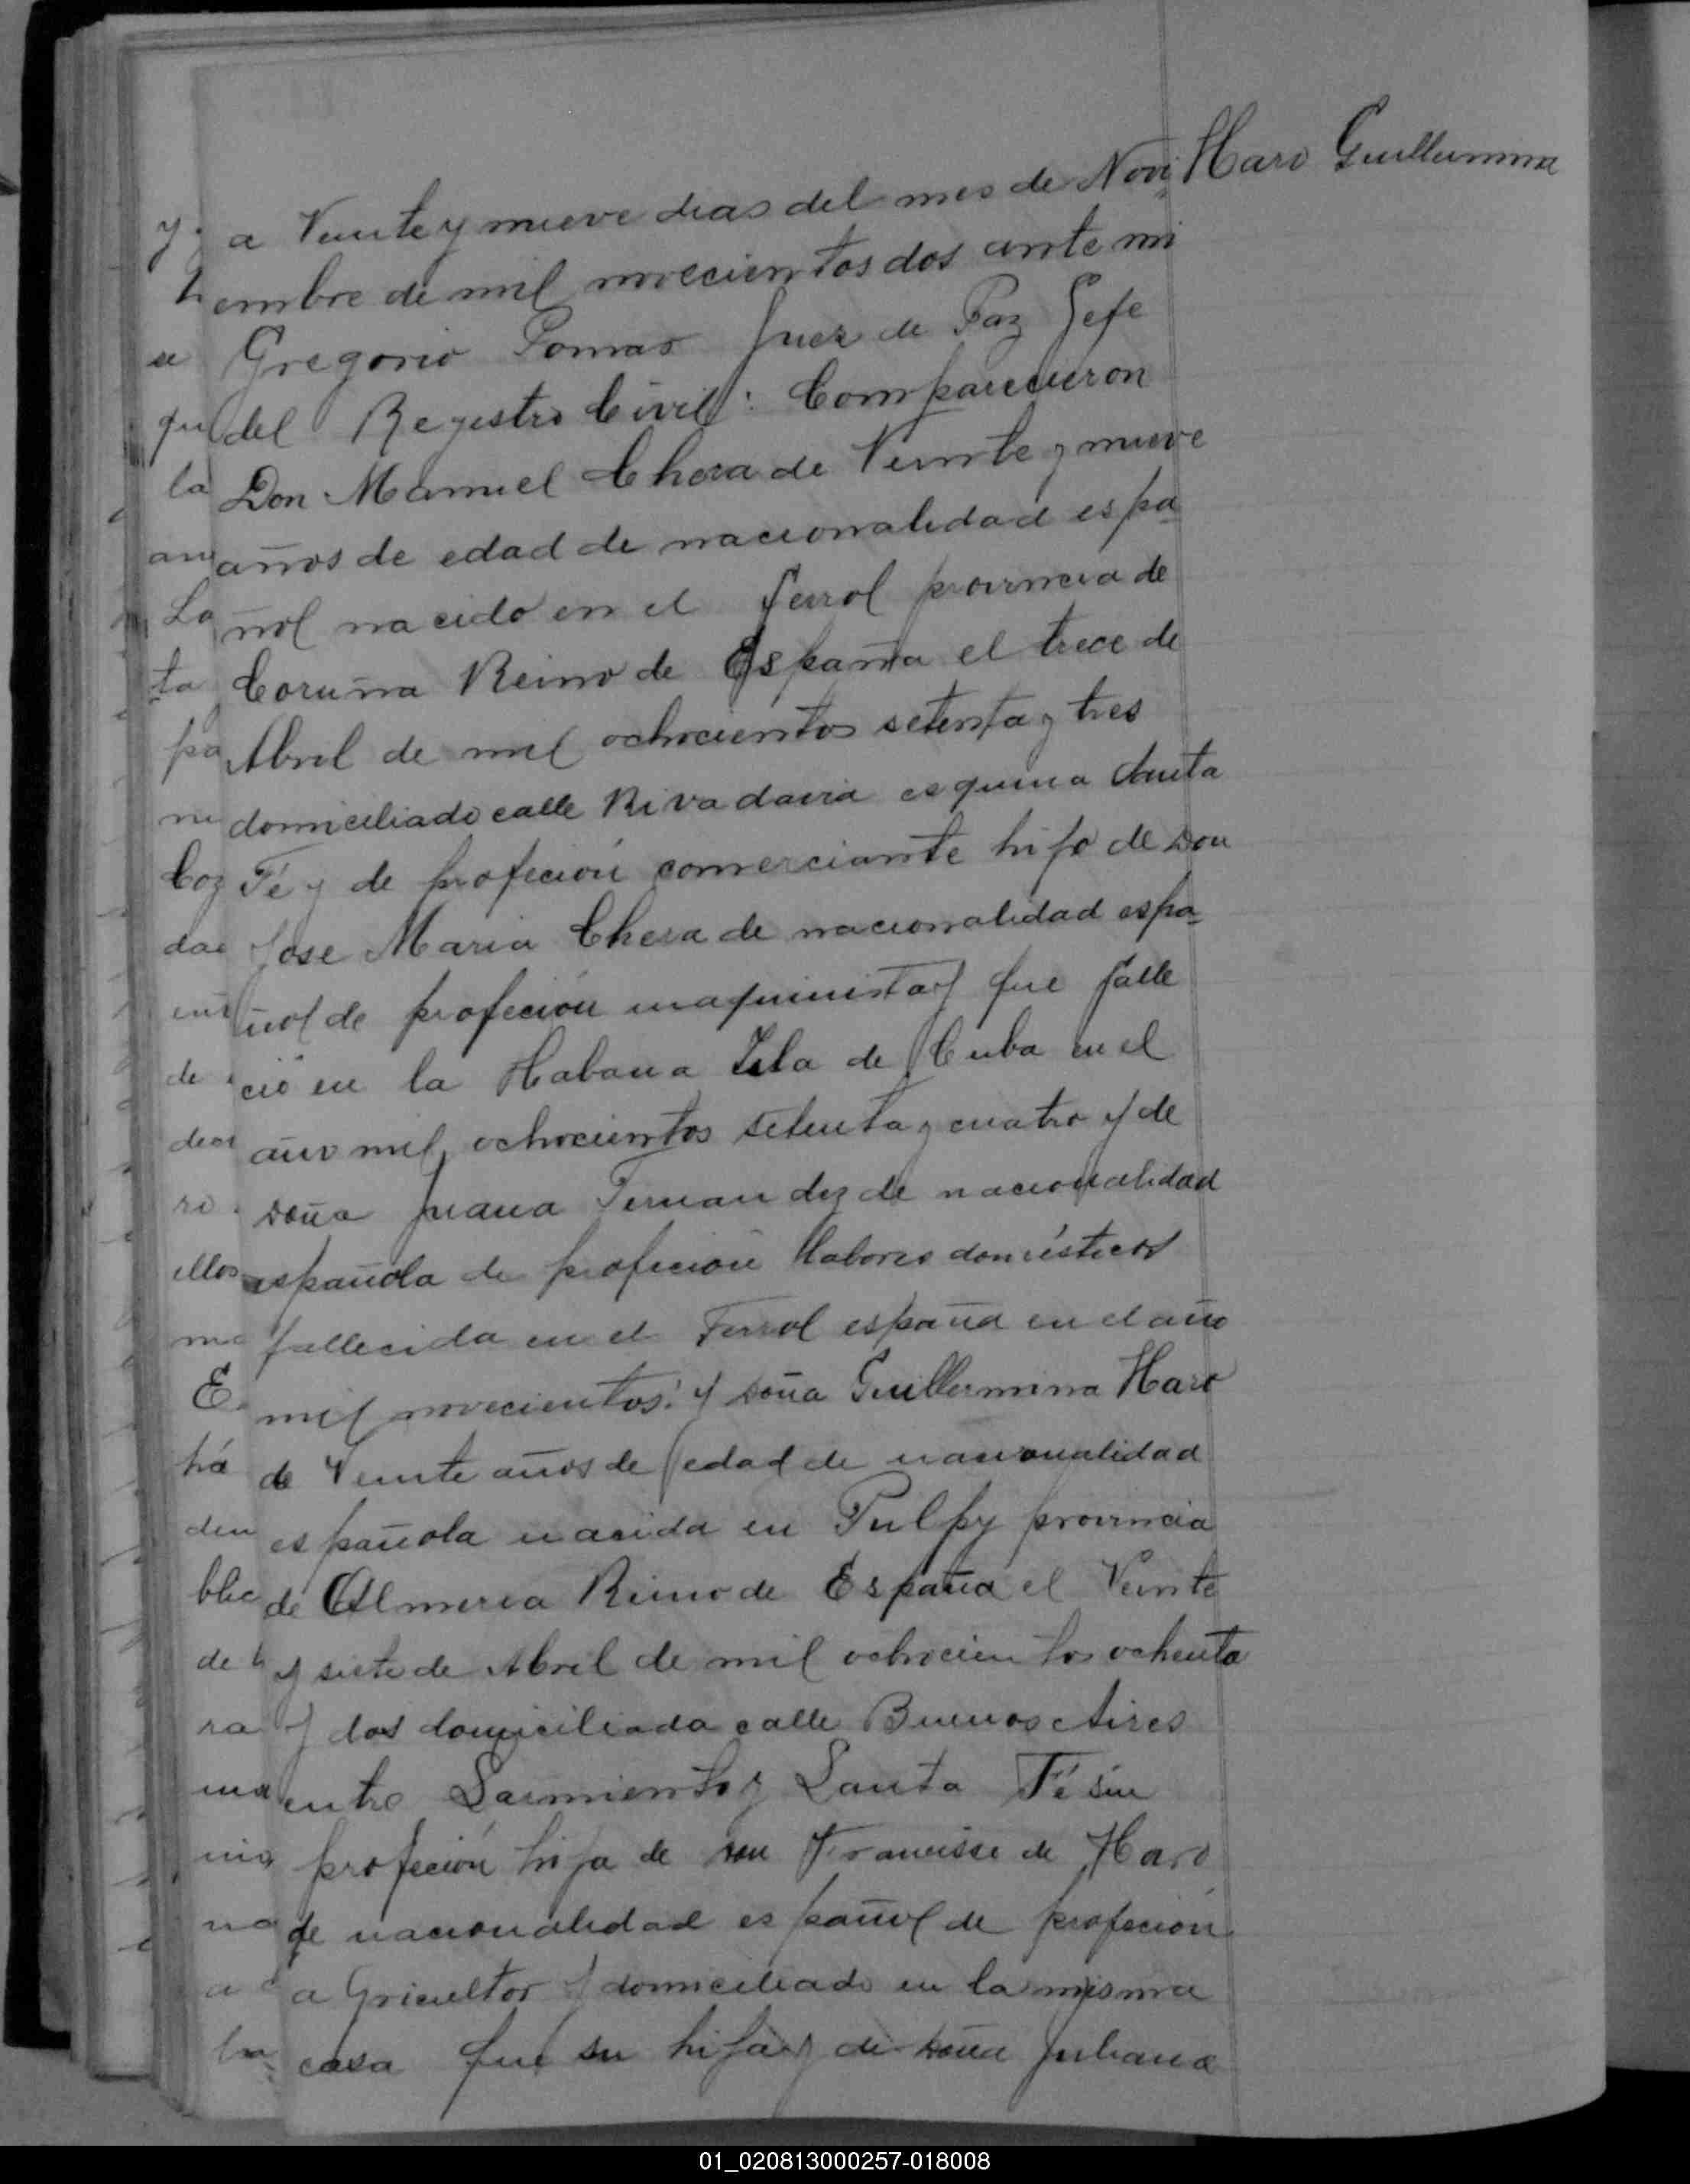 Haro Guillermina
a Veinte y nueve dias del mes de Novi
embre de mil novecientos dos ante mi
Gregorio Pomar Juez de Paz Gefe
del Registro Civil: Comparecieron
Don Manuel Chesa de Veinte y nueve
años de edad de nacionalidad espa
ñol nacido en el ferrol provincia de
Coruña Reino de España el trece de
Abril de mil ochocientos setenta y tres
domiciliado calle Rivadavia esquina Santa
Fé y de profeción comerciante hijo de Don
Jose Maria Chesa de nacionalidad espa
ñol de profeción maquinista y que falle
ció en la Habana Isla de Cuba en el
año mil ochocientos setenta y cuatro y de
Doña Juana Fernandez de nacionalidad
española de profeción labores domésticos
fallecida en el Ferrol españa en el año
mil novecientos: y Doña Guillermina Haro
de Veinte años de edad de nacionalidad
española nacida en Pulpy provincia
de Almeria Reino de España el Veinte
y siete de Abril de mil ochocientos ochenta
y dos domiciliada calle Buenos Aires
entre Sarmiento y Santa Fé sin
profeción hija de Don Francisco de Haro
de nacionalidad español de profeción
agricultor y domiciliado en la misma
casa que su hija y de Doña Juliana
01_020813000257-018008